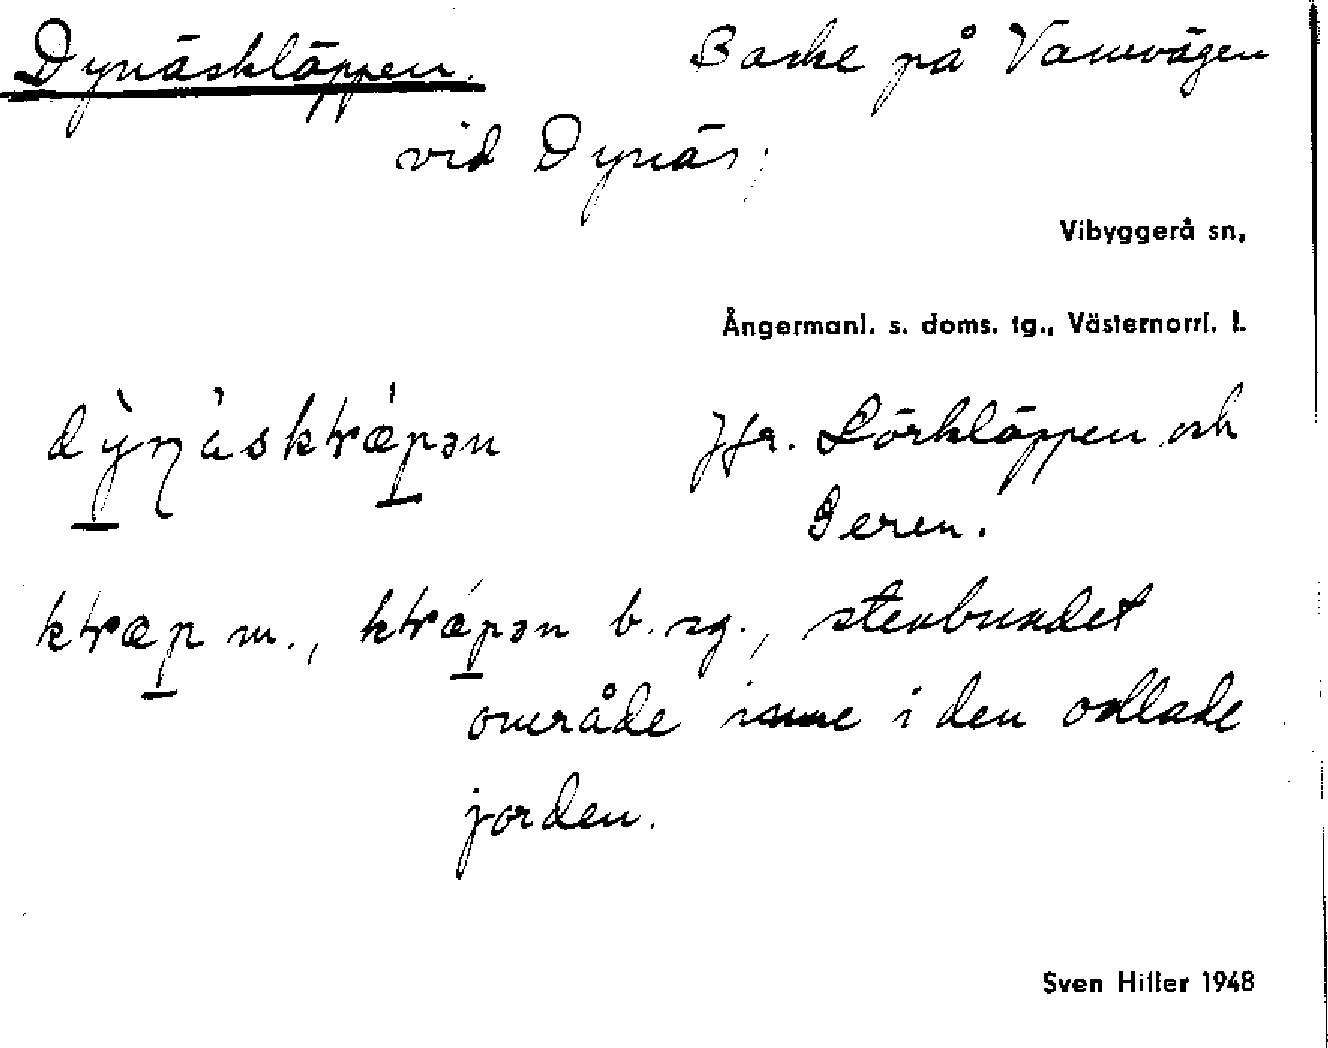 Dynäskläppen. Backe på Vanuvägen
vid Dynäs;
Vibyggerå sn,
Ångermanl. s. doms. tg., Västernorrl. l.
Jfr. Lörkläppen och
Geren.
m., b. sg., stenbundet
område inne i den odlade
jorden.
Sven Hitter 1948